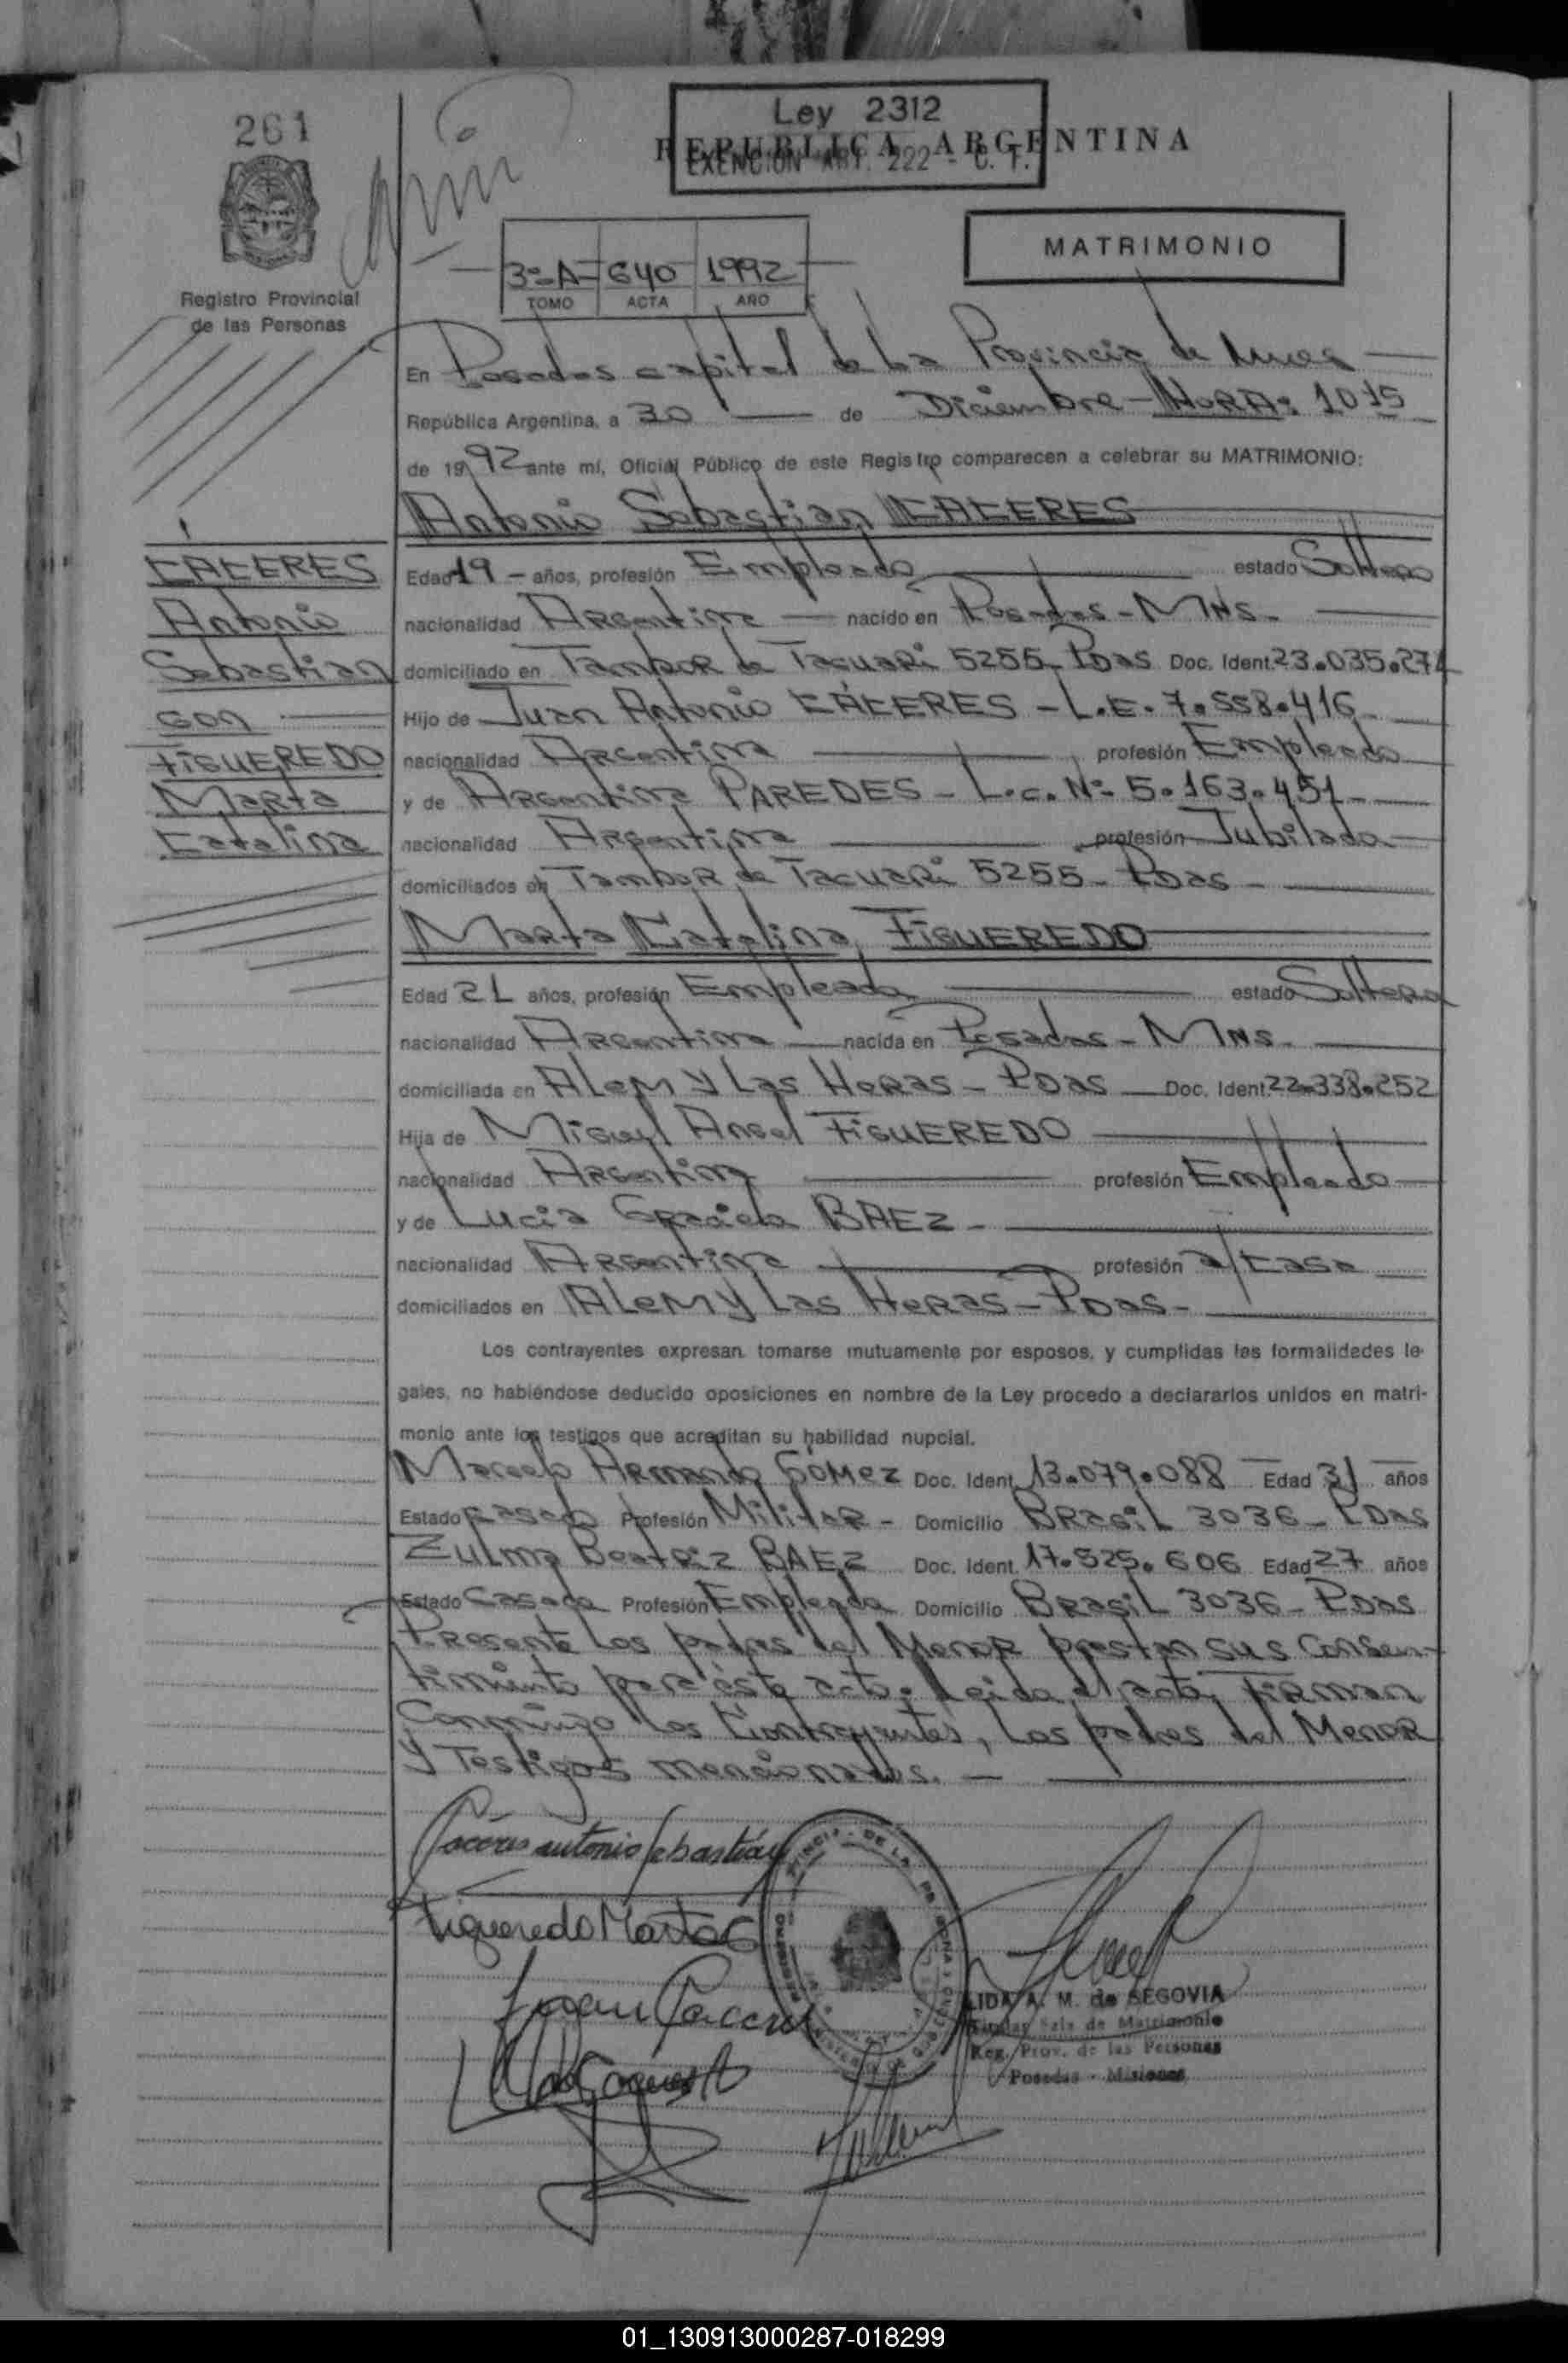 261
Ley 2312
REPUBLICA ARGENTINA
EXENCION ART. 222 - C. T.
MATRIMONIO
3º-A- 640 1992
TOMO ACTA AÑO
Registro Provincial
de las Personas
En Posadas capital de la Provincia de Mnes
República Argentina, a 30 de Diciembre - HORA: 10 15
de 1992 ante mí, Oficial Público de este Registro comparecen a celebrar su MATRIMONIO:
Antonio Sebastian CACERES
CACERES
Antonio
Sebastian
con
FIGUEREDO
Marta
Catalina
Edad 19 - años, profesión Empleado estado Soltero
nacionalidad Argentina nacido en Posadas - MNS.
domiciliado en Tambor de Tacuari 5255 - Pdas Doc. Ident. 23.035.274
Hijo de Juan Antonio CÁCERES - L.E. 7.558.416
nacionalidad Argentina profesión Empleado
y de Argentina PAREDES - L.C. Nº 5.163.451
nacionalidad Argentina profesión Jubilada
domiciliados en Tambor de Tacuari 5255 - Pdas -
Marta Catalina FIGUEREDO
Edad 21 años, profesión Empleada estado Soltera
nacionalidad Argentina nacida en Posadas - MNS.
domiciliada en Alem y Las Heras - Pdas Doc. Ident. 22.338.252
Hija de Miguel Angel FIGUEREDO
nacionalidad Argentina profesión Empleado
y de Lucia Graciela BAEZ -
nacionalidad Argentina profesión a/casa
domiciliados en Alem y Las Heras - Pdas -
Los contrayentes expresan tomarse mutuamente por esposos, y cumplidas las formalidades le-
gales, no habiéndose deducido oposiciones en nombre de la Ley procedo a declararlos unidos en matri-
monio ante los testigos que acreditan su habilidad nupcial.
Marcelo Armando GÓMEZ Doc. Ident. 13.079.088 Edad 31 años
Estado Casado Profesión Militar - Domicilio Brasil 3036 - Pdas
Zulma Beatriz BAEZ Doc. Ident. 17.525.606 Edad 27 años
Estado Casada Profesión Empleada Domicilio Brasil 3036 - Pdas
Presente los padres del Menor prestan sus Consen-
timiento para éste acto. Leida el acta, Firman
Conmigo los Contrayentes, los padres del Menor
y Testigos mencionados. -
Cáceres antonio sebastián
Figueredo Marta C
Juan Caceres
LIDA A. M. de SEGOVIA
Titular Sala de Matrimonio
Reg. Prov. de las Personas
Posadas - Misiones
01_130913000287-018299